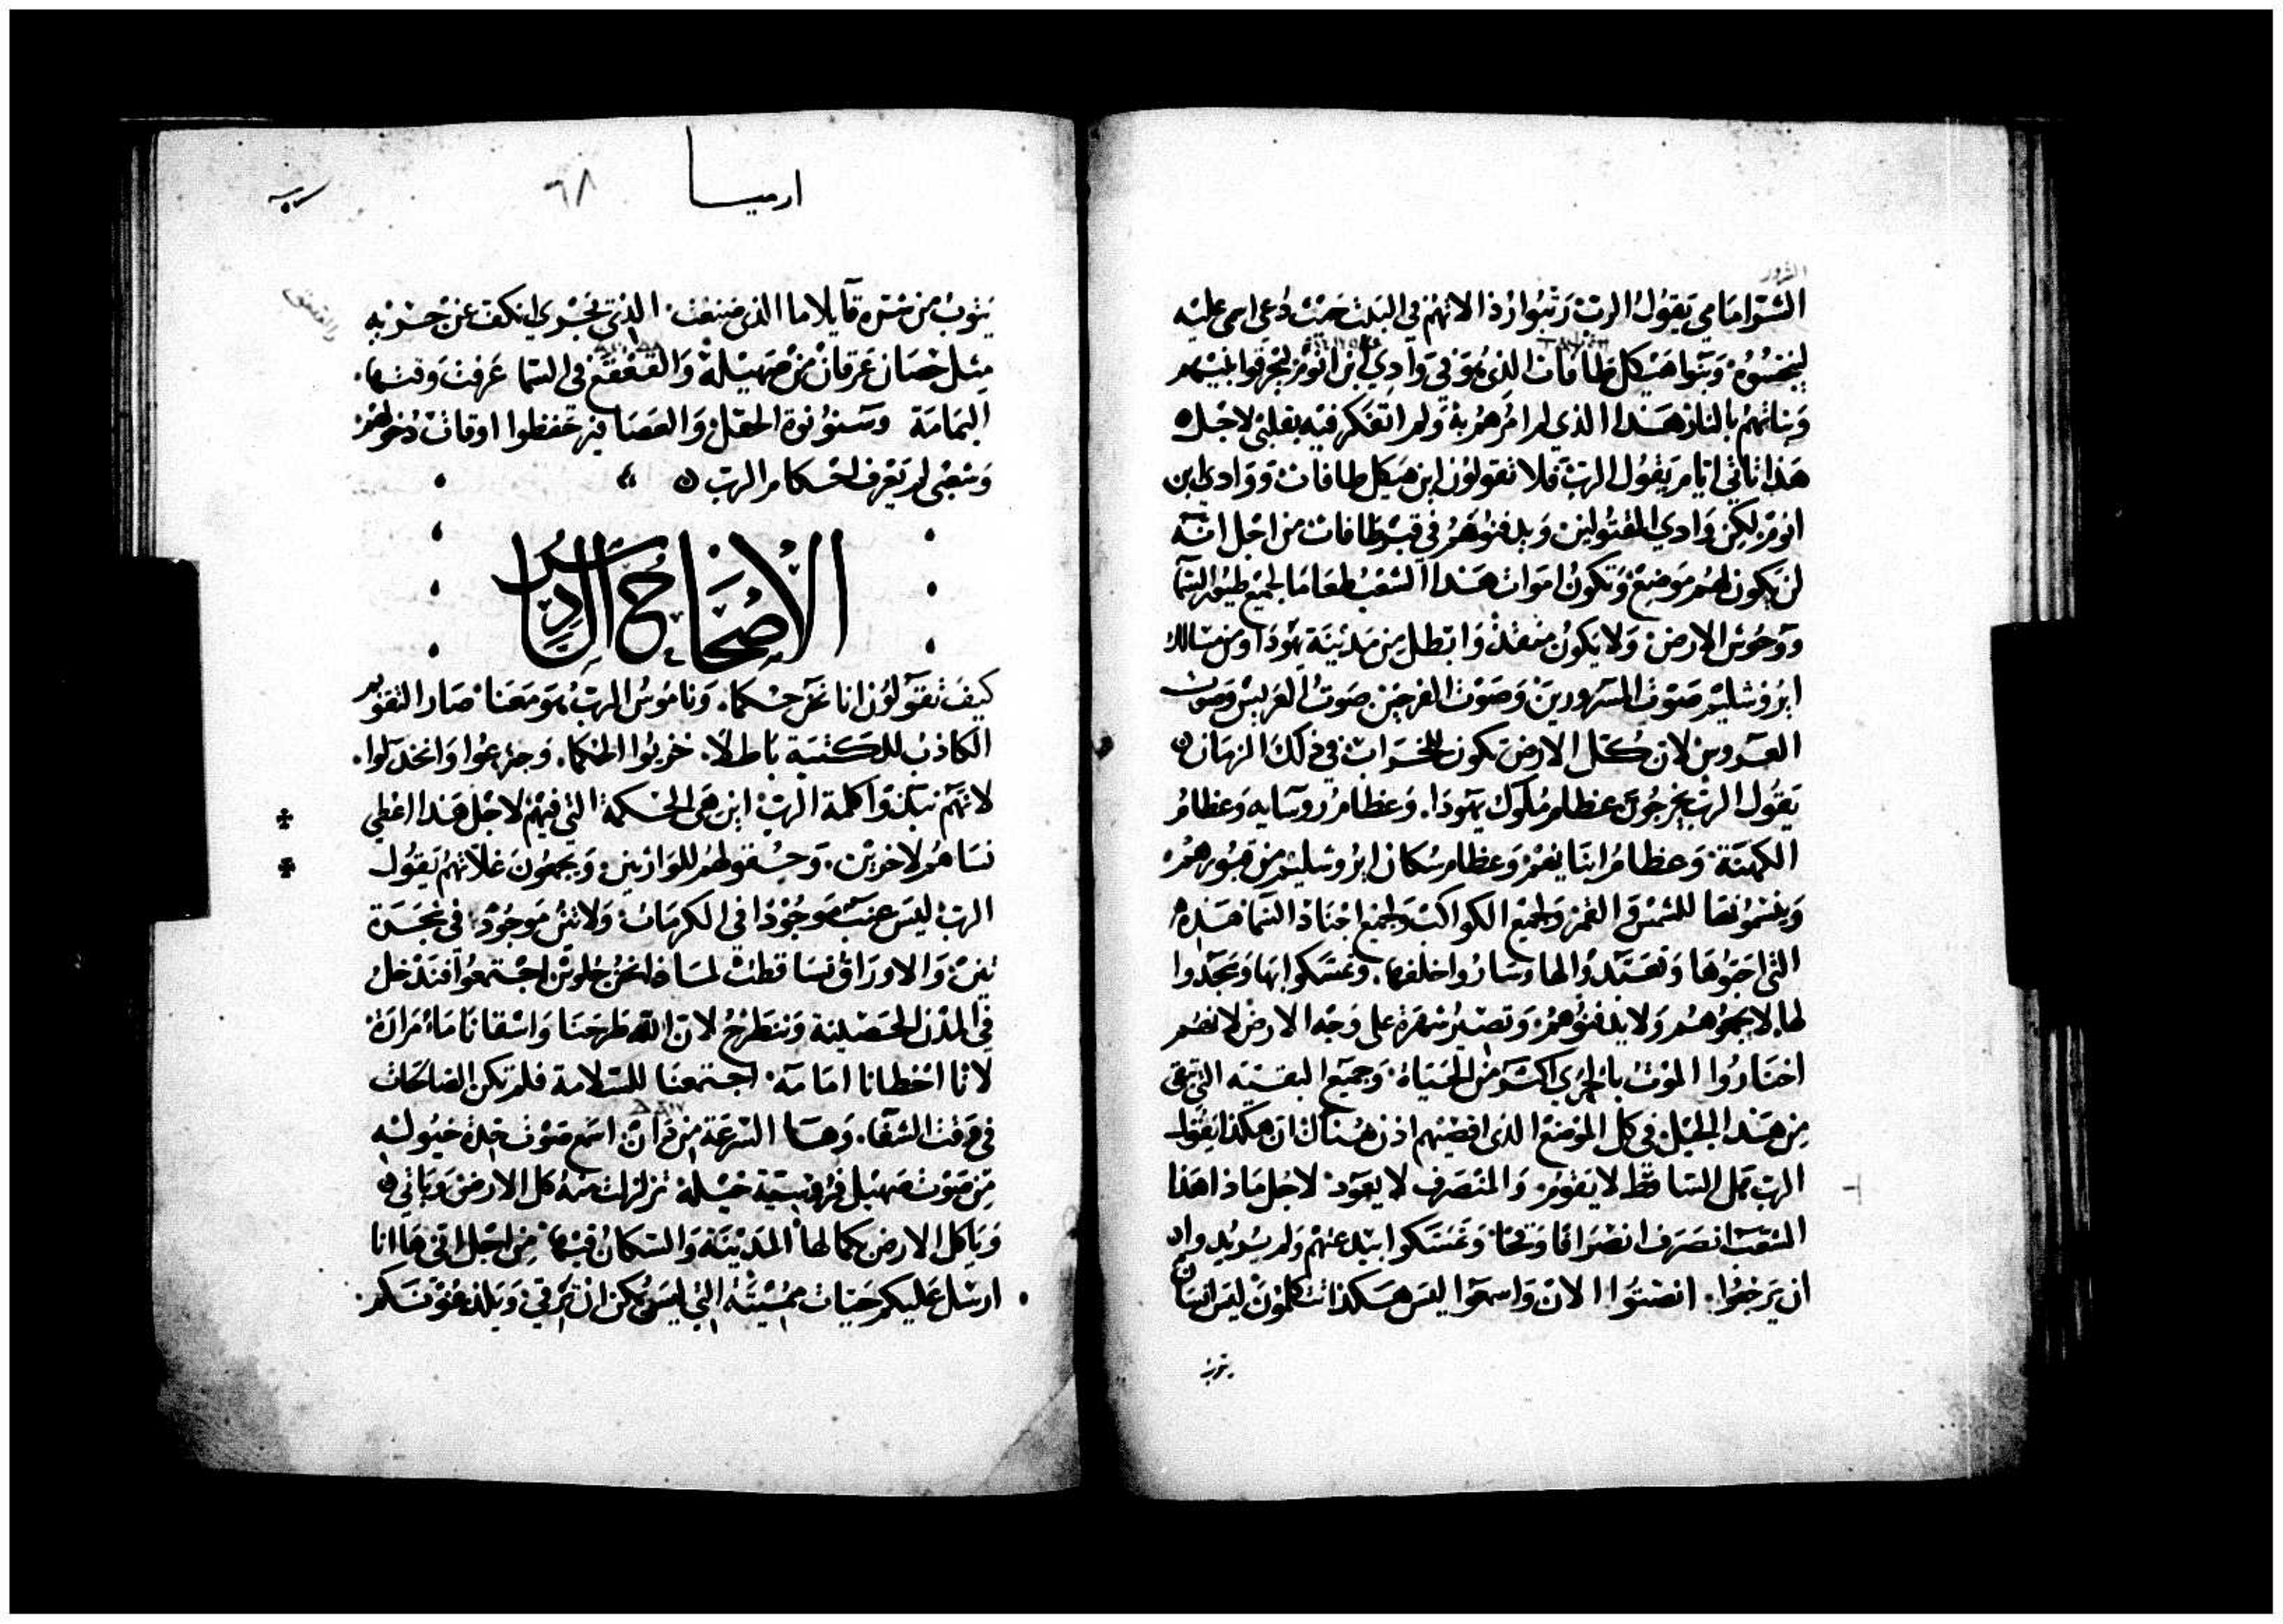 الشرور
الشر امامي يقول الرب رتبوا ارذالاتهم في البيت حيث دعي اسمي عليه
لينجسوه وبنوا هيكل طافاث الذي هو في وادي ابن انوم ليحرقوا بنيهم
وبناتهم بالنار هذا الذي لم امرهم به ولم اتفكر فيه بقلبي لاجل
هذا تاتي ايام يقول الرب فلا تقولون اين هيكل طافاث ووادي ابن
انوم لكن وادي المقتولين ويدفنوهم في قبر طافاث من اجل انه
لن يكون لهم موضع وتكون اموات هذا الشعب طعاما لجميع طيور السما
ووحوش الارض ولا يكون منقذ وابطل من مدينة يهودا ومن مسالك
ايروشليم صوت المسرورين وصوت الفرحين صوت العريس وصوت
العروس لان كل الارض تكون للخراب في ذلك الزمان
يقول الرب يخرجون عظام ملوك يهودا. وعظام روسايه وعظام
الكهنة وعظام انبيايهم وعظام سكان ايروشليم من قبورهم
وينشرونها للشمس والقمر ولجميع الكواكب ولجميع اجناد السما هذه
التي احبوها وتعبدوا لها وساروا خلفها. وتمسكوا بها وسجدوا
لها. لا يجمعوهم ولا يدفنوهم وتصير شهرة على وجه الارض لانهم
اختاروا الموت بالحري اكثر من الحياة وجميع البقية التي تبقى
من هذا الجيل في كل الموضع الذي اقصيهم اذن هناك ان هكذا يقول
الرب هل الساقط لا يقوم والمنصرف لا يعود لاجل ماذا هذا
الشعب انصرف انصرافا وقحا وتمسكوا ببدعتهم ولم يريدوا
ان يرجعوا. انصتوا الان واسمعوا ليس هكذا تتكلمون ليس انسان
يتوب
ارميا
٦٨
يتوب من شره قايلا ما الذي صنعت الذي يجري انكف عن جريه
مثل حصان عرقان من صهيله والقعقع في السما عرفت وقتها.
اليمامة وسنونوة الحقل والعصافير حفظوا اوقات دخولهم
وشعبي لم يعرف احكام الرب
الاصحاح السادس
كيف تقولون انا نحن حكما. وناموس الرب هو معنا صار القوم
الكاذب للكتبة باطلا. خزيوا الحكما. وجزعوا وانخذلوا.
لانهم نبذوا كلمة الرب اين هي الحكمة التي فيهم لاجل هذا اعطي
نساهم لاخرين. وحقولهم للوارثين ويجمعون غلاتهم يقول
الرب ليس عنب موجودا في الكرمات ولا تين موجود في شجرة
تين والاوراق تساقطت لماذا نحن جلوس اجتمعوا فندخل
في المدن الحصينة وننطرح لان الله طرحنا واسقانا ماء مرارة
لانا اخطانا امامه اجتمعنا للسلامة فلم تكن الصالحات
في وقت الشفا. وها السرعة من دان اسمع صوت حدة خيوله
من صوت صهيل فروسية خيله تزلزلت منه كل الارض وياتي
وياكل الارض كمالها المدينة والسكان فيها من اجل اني ها انا
ارسل عليكم حيات مميتة التي ليس يمكن ان ترقى ويلدغونكم